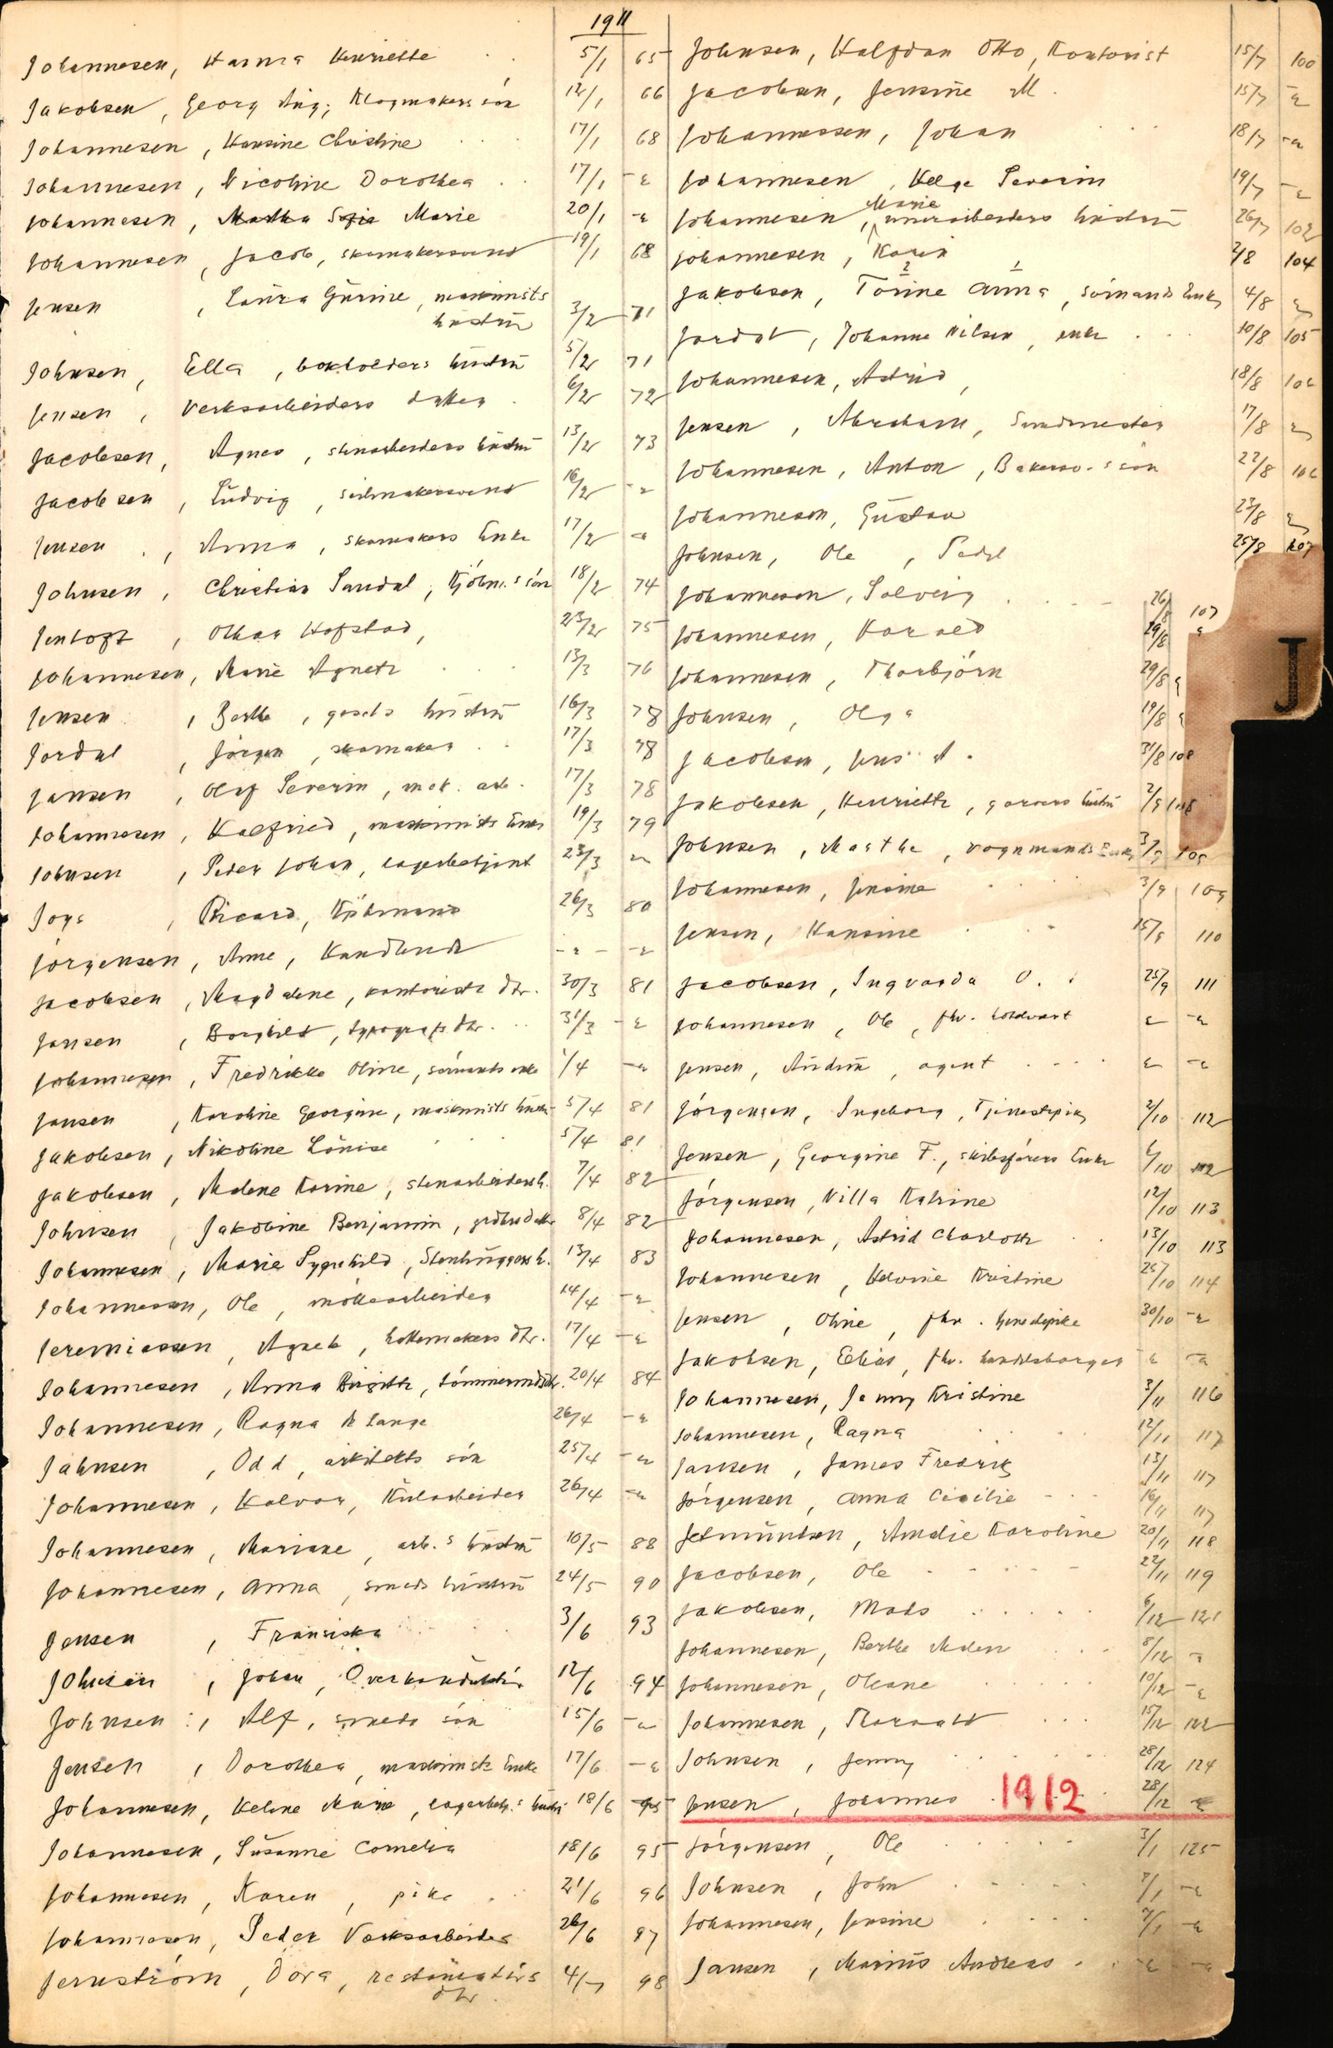 1911
Johannesen, Hanna Henriette 5/1 65
Jakobsen, Georg Aug; Klogmakers sön 12/1 66
Johannesen, Hansine Christine 17/1 68
Johannesen, Nicoline Dorothea 17/1 -"-
Johannesen, Martha Sofie Marie 20/1 -"-
Johannesen, Jacob, skomakersvend 19/1 68
Jensen, Laura Gurine, maskinists
hustru 3/2 71
Johnsen, Ella, bokholders hustru 5/2 71
Jensen, Verksarbeiders datter 6/2 72
Jacobsen, Agnes, stenarbeiders hustru 13/2 73
Jacobsen, Ludvig, seilmakersvend 16/2 -"-
Jensen, Anna, skomakers Enke 17/2 -"-
Johnsen, Christian Sandal, Kjöbm.s sön 18/2 74
Jentoft, Othar Hofstad, 23/2 75
Johannesen, Marie Agnete 13/3 76
Jensen, Berthe, hustru 16/3 78
Jordal, Jörgen, skomaker 17/3 78
Jansen, Olaf Severin, mek. arb. 17/3 78
Johannesen, Halfried, maskinists Enke 19/3 79
Johnsen, Peder Johan, lagerbetjent 23/3 "
Joys, Ricard, Kjöbmand 26/3 80
Jörgensen, Anne, -"- -"-
Jacobsen, Magdalene, kontorists dtr. 30/3 81
Jansen, Borghild, typografs dtr. 31/3 -"-
Johannesen, Fredrikke Oline, sömands enke 1/4 -"-
Jansen, Karoline Georgine, maskinists hustru 5/4 81
Jakobsen, Nikoline Lovise 5/4 81
Jakobsen, Malene Karine, stenarbeiders h. 7/4 82
Johnsen, Jakobine Benjamin, 8/4 82
Johannesen, Marie Sygnhild, Stenhuggers h. 13/4 83
Johannesen, Ole, möllearbeider 14/4 -"-
Jeremiassen, Agnete, hattemakers dtr. 17/4 -"-
Johannesen, Anna Birgitte, tömmermds dtr. 20/4 84
Johannesen, Ragna M Lange 26/4 -"-
Jahnsen, Odd, arkitekts sön 25/4 -"-
Johannesen, Halvor, Kularbeider 26/4 -"-
Johannesen, Mariane, arb.s hustru 10/5 88
Johannesen, Anna, smeds hustru 24/5 90
Jensen, Fransiska 3/6 93
Johnsen, Johan, Overkonduktör 12/6 94
Johnsen, Alf, smeds sön 15/6 -"-
Jensen, Dorothea, maskinists Enke 17/6 -"-
Johannesen, Heline Marie, lagerbetj.s hustru 18/6 95
Johannesen, Susanne Cornelia 18/6 95
Johannesen, Karen, pike 21/6 96
Johannesen, Peder Verksarbeider 26/6 97
Jernström, Dora, restauratörs
dtr. 4/7 98
Johnsen, Halfdan Otto, Kontorist 15/7 100
Jacobsen, Jensine M. 15/7 -"-
Johannessen, Johan 18/7 -"-
Johannesen, Helge Severin 19/7 -"-
Marie
Johannesen, murarbeiders hustru 26/7 102
Johannesen, Karen 2/8 104
2 1
Jakobsen, Torine Anna, sömands Enke 4/8 "
Jordal, Johanne Nilsen, enke 10/8 105
Johannesen, Astrid, 18/8 106
Jensen, Abraham, Sundmester 17/8 "
Johannesen, Anton, Bakersv.s sön 22/8 106
Johannesen, Gustav 23/8 "
Johnsen, Ole, Pedel 25/8 107
Johannesen, Solveig 26/8 107
Johannesen, Harald 29/8 "
Johannesen, Thorbjörn 29/8 "
Johnsen, Olga 19/8 "
Jacobsen, Jens A. 31/8 108
Jakobsen, Henriette, garvers hustru 2/9 108
Johnsen, Marthe, vognmands Enke 3/9 109
Johannesen, Jensine 3/9 109
Jensen, Hansine 15/9 110
Jacobsen, Ingvarda O. 25/9 111
Johannesen, Ole, fhv. " -"-
Jensen, Audun, agent " -"-
Jörgensen, Ingeborg, Tjenestepike 2/10 112
Jensen, Georgine F., skibsförers Enke 6/10 112
Jörgensen, Villa Katrine 12/10 113
Johannesen, Astrid Charlotte 13/10 113
Johannesen, Helvine Kristine 25/10 114
Jensen, Oline, fhv. tjenestepike 30/10 -"-
Jakobsen, Elias, fhv. handelsborger " -"-
Johannesen, Jenny Kristine 3/11 116
Johannesen, Ragna 12/11 117
Jansen, James Fredrik 13/11 117
Jörgensen, Anna Cicilie 16/11 117
Jetmundsen, Amalie Karoline 20/11 118
Jacobsen, Ole 22/11 119
Jakobsen, Mads 6/12 121
Johannesen, Berthe Malene 8/12 -"-
Johannesen, Oleane 10/12 -"-
Johannesen, Thorvald 15/12 122
Johnsen, Jenny 28/12 124
Jensen, Johannes 28/12 -"-
1912
Jörgensen, Ole 3/1 125
Johnsen, John 7/1 -"-
Johannesen, Jensine 7/1 -"-
Jansen, Marius Andreas " -"-
J